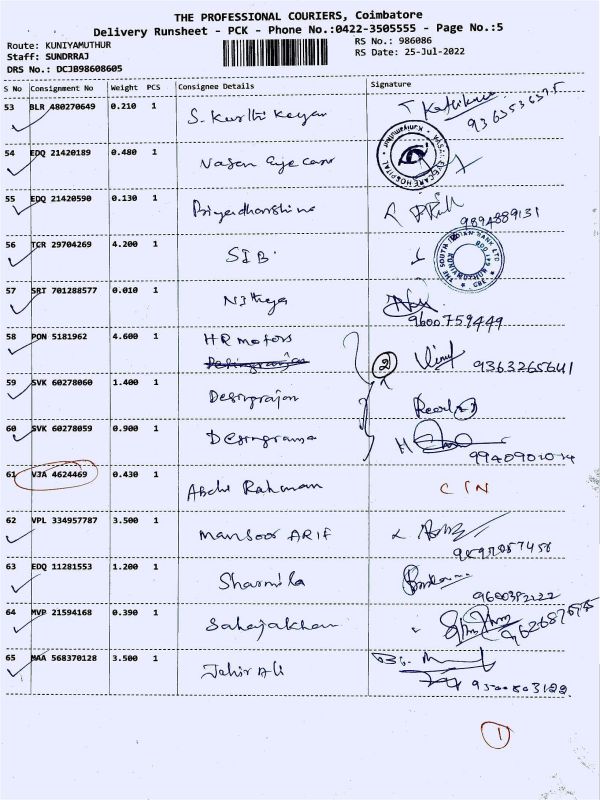 THE PROFESSIONAL COURIERS, Coimbatore
Delivery Runsheet - PCK - Phone No.:0422-3505555 - Page No.:5
Route: KUNIYAMUTHUR
RS No.: 986086
Staff: SUNDRRAJ
RS Date: 25-Jul-2022
DRS No.: DCJB98608605
S No Consignment No Weight PCS Consignee Details Signature
53 BLR 480270649 0.210 1 S. Karthi Keyan
9363536375
54 EDQ 21420189 0.480 1 Vasan Eye Care
55 EDQ 21420590 0.130 1 Priyadharshine
9894889131
56 TCR 29704269 4.200 1 SIB
THE SOUTH INDIAN BANK LTD
57 SRT 701288577 0.010 1 Nithya
9600759449
58 PON 5181962 4.600 1 HR motors
2
9363265641
59 SVK 60278060 1.400 1 Desingrajan
60 SVK 60278059 0.900 1
61 VJA 4624469 0.430 1 Abdul Rahman
62 VPL 334957787 3.500 1 Mansoor ARIF
63 EDQ 11281553 1.200 1 Sharmila
64 MVP 21594168 0.390 1 Sahajakhan
65 MAA 568370128 3.500 1 Jahir Ali
1